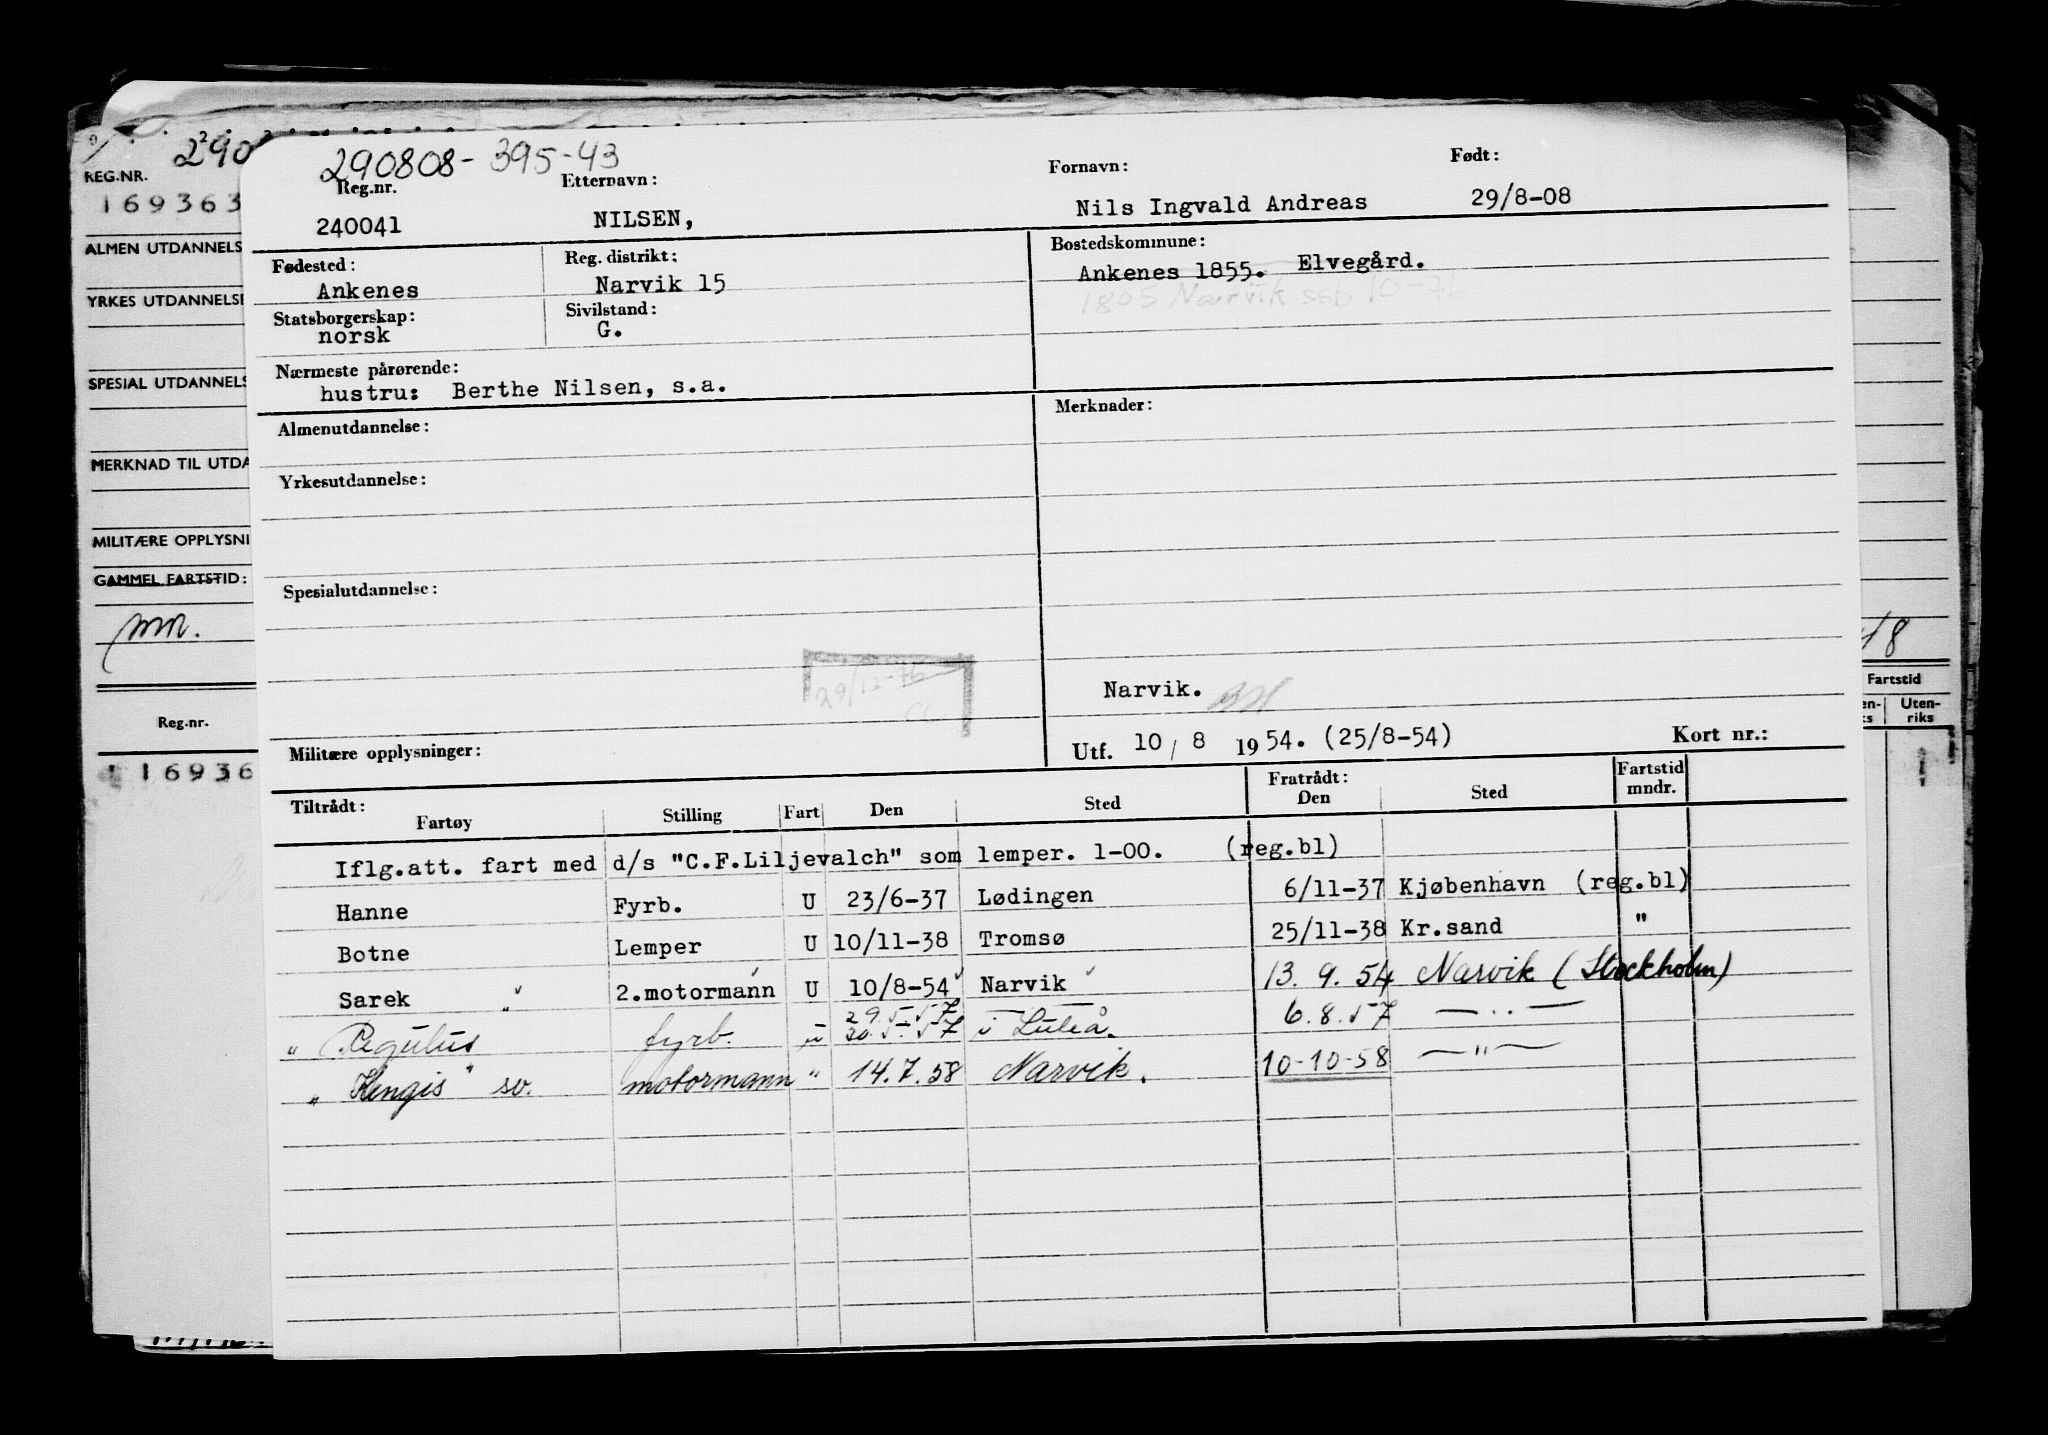 290808-395-43
Reg.nr. Etternavn: Fornavn: Født:
240041 NILSEN, Nils Ingvald Andreas 29/8-08
Fødested: Reg. distrikt: Bostedskommune:
Ankenes Narvik 15 Ankenes 1855. Elvegård.
1805 Narvik ssb 10-7
Statsborgerskap: Sivilstand:
norsk G.
Nærmeste pårørende:
hustru: Berthe Nilsen, s.a.
Almenutdannelse: Merknader:
Yrkesutdannelse:
Spesialutdannelse:
29/12-76
Narvik.
Militære opplysninger: Utf. 10/8 1954. (25/8-54) Kort nr.:
Tiltrådt: Fratrådt: Fartstid
Fartøy Stilling Fart Den Sted Den Sted mndr.
Iflg.att. fart med d/s "C.F.Liljevalch" som lemper. 1-00. (reg.bl)
Hanne Fyrb. U 23/6-37 Lødingen 6/11-37 Kjøbenhavn (reg.bl)
Botne Lemper U 10/11-38 Tromsø 25/11-38 Kr.sand "
Sarek " 2.motormann U 10/8-54 Narvik 13.9.54 Narvik (Stockholm)
29.5.57
" Regulus fyrb. u 30.5.57 i Luleå. 6.8.57 — " —
" Kengis" sv. motormann " 14.7.58 Narvik. 10-10-58 — " —
290
REG.NR.
169363
ALMEN UTDANNELS
YRKES UTDANNELSE
SPESIAL UTDANNELS
MERKNAD TIL UTDA
MILITÆRE OPPLYSNI
GAMMEL FARTSTID:
mn.
Reg.nr.
16936
48
Fartstid
en-ks Uten-riks